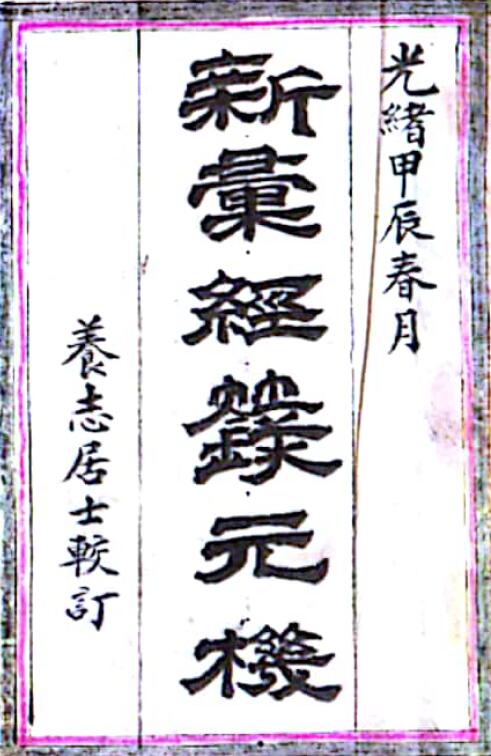 光緒甲辰春月
新彙經籙元機
養志居士較訂